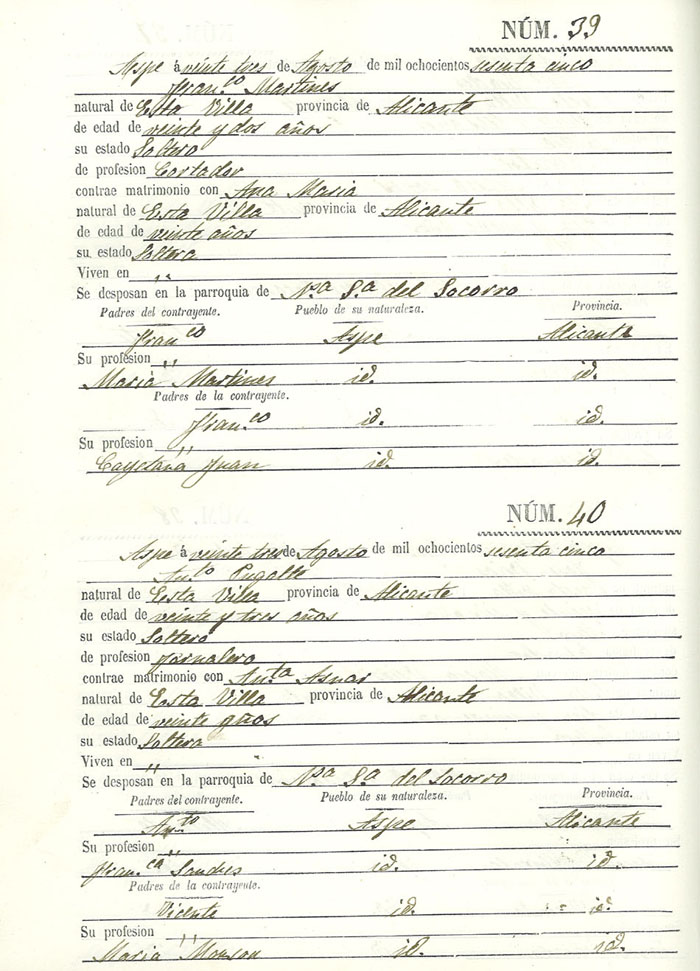 NÚM. 39
Aspe á veinte tres de Agosto de mil ochocientos sesenta cinco
Fran.co Martines
natural de Esta Villa provincia de Alicante
de edad de veinte y dos años
su estado Soltero
de profesion Cortador
contrae matrimonio con Ana Maria
natural de Esta Villa provincia de Alicante
de edad de veinte años
su estado Soltera
Viven en "
Se desposan en la parroquia de N.a S.a del Socorro
Padres del contrayente. Pueblo de su naturaleza. Provincia.
Fran.co Aspe Alicante
Su profesion "
Maria Martines id. id.
Padres de la contrayente.
Fran.co id. id.
Su profesion "
Cayetana Juan id. id.
NÚM. 40
Aspe á veinte tres de Agosto de mil ochocientos sesenta cinco
An.to Pugalte
natural de Esta Villa provincia de Alicante
de edad de veinte y tres años
su estado Soltero
de profesion jornalero
contrae matrimonio con An.ta Asnar
natural de Esta Villa provincia de Alicante
de edad de veinte años
su estado Soltera
Viven en "
Se desposan en la parroquia de N.a S.a del Socorro
Padres del contrayente. Pueblo de su naturaleza. Provincia.
An.to Aspe Alicante
Su profesion "
Fran.ca id. id.
Padres de la contrayente.
Vicente id. id.
Su profesion "
Maria id. id.